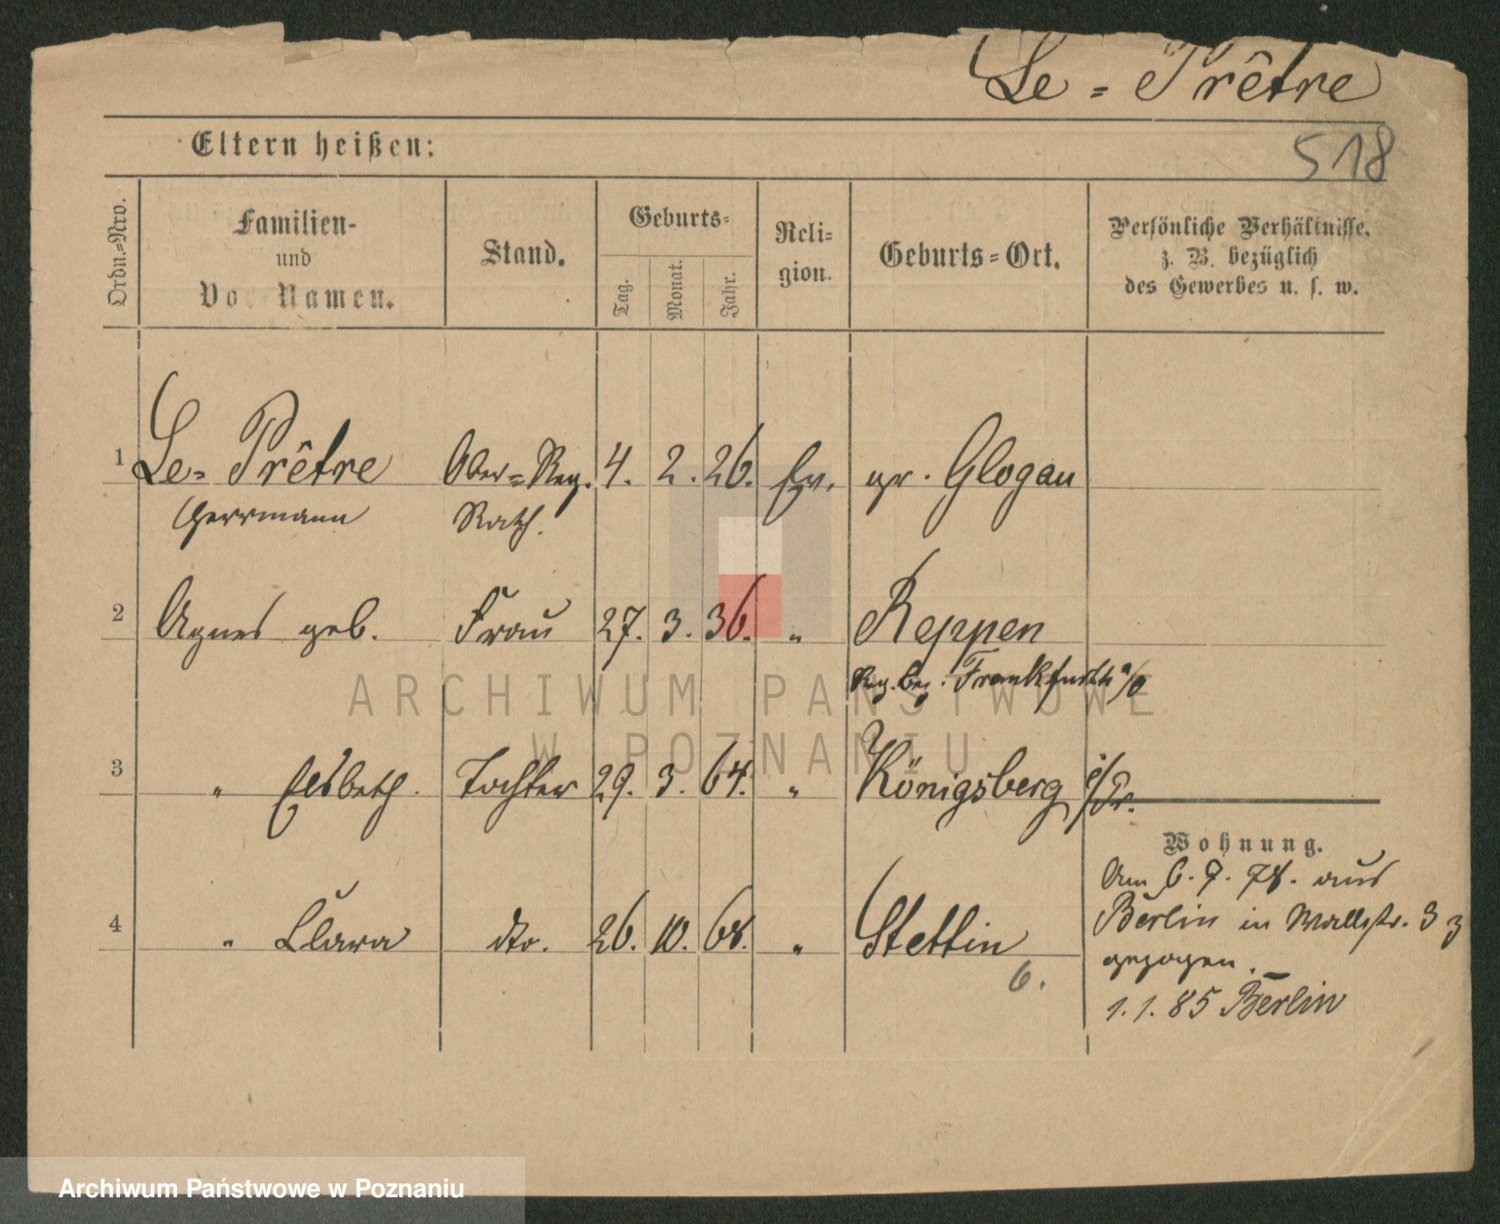 Le-Prêtre
Eltern heißen:
518
Ordn.-Nro.
Familien-
und
Vor-Namen.
Stand.
Geburts-
Tag.
Monat.
Jahr.
Reli-
gion.
Geburts-Ort.
Persönliche Verhältnisse,
z. B. bezüglich
des Gewerbes u. s. w.
1 Le-Prêtre Ober-Reg. 4. 2. 26. Ev. gr. Glogau
Herrmann Rath.
2 Agnes geb. Frau 27. 3. 36. " Reppen
Reg. Bez. Frankfurth a/O
3 " Elsbeth. Tochter 29. 3. 64. " Königsberg i/Pr.
Wohnung.
4 " Clara dto. 26. 10. 68. " Stettin
6.
Am 6. 7. 78. aus
Berlin in Wallstr. 33
gezogen.
1.1.85 Berlin
ARCHIWUM PAŃSTWOWE
W POZNANIU
Archiwum Państwowe w Poznaniu